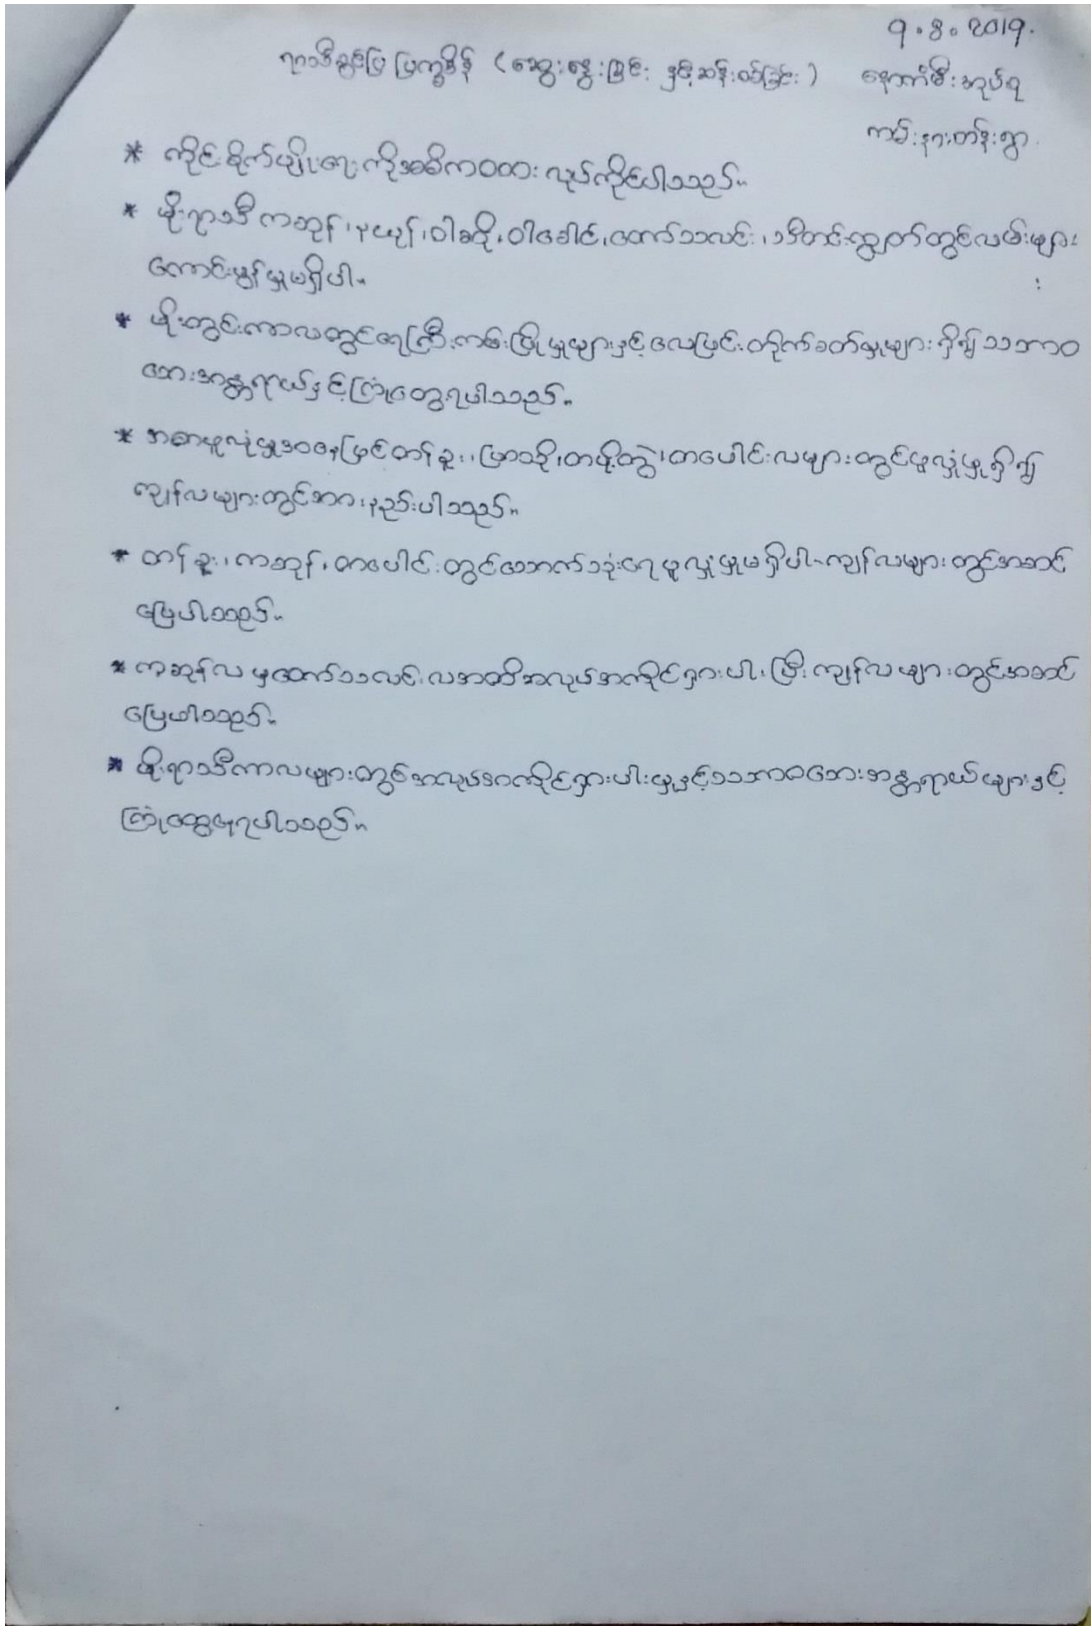 9.8.2019.
ရာသီခွင်ပြ ပြက္ခဒိန် (ဆွေးနွေးခြင်း နှင့်ဆန်းစစ်ခြင်း) နောက်မီးအုပ်စု
ကမ်းနားတန်းရွာ.
* ကိုင်းစိုက်ပျိုးရေးကိုအဓိကထား လုပ်ကိုင်ပါသည်။
* မိုးရာသီ ကဆုန်၊ နယုန်၊ ဝါဆို၊ ဝါခေါင်၊ တော်သလင်း၊ သီတင်းကျွတ်တွင်လမ်းများ
ကောင်းမွန်မှုမရှိပါ။
* မိုးတွင်းကာလတွင်ရေကြီး၊ကမ်းပြိုမှုများနှင့်လေပြင်းတိုက်ခတ်မှုများရှိ၍ သဘာဝ
ဘေးအန္တရာယ်နှင့်ကြုံတွေ့ရပါသည်။
* အစာဖူလုံမှုအနေဖြင့်တန်ခူး၊ ပြာသို၊ တပို့တွဲ၊ တပေါင်းလများတွင်ဖူလှုံမှုရှိ၍
ကျန်လများတွင်အားနည်းပါသည်။
* တန်ခူး၊ ကဆုန်၊ တပေါင်းတွင်သောက်သုံးရေဖူလှုံမှုမရှိပါ၊ ကျန်လများတွင်အဆင်
ပြေပါသည်။
* ကဆုန်လမှတော်သလင်းလအထိအလုပ်အကိုင်ရှားပါးပြီးကျန်လများတွင်အဆင်
ပြေပါသည်။
* မိုးရာသီကာလများတွင်အလုပ်အကိုင်ရှားပါးမှုနှင့်သဘာဝဘေးအန္တရာယ်များနှင့်
ကြုံတွေ့နေရပါသည်။